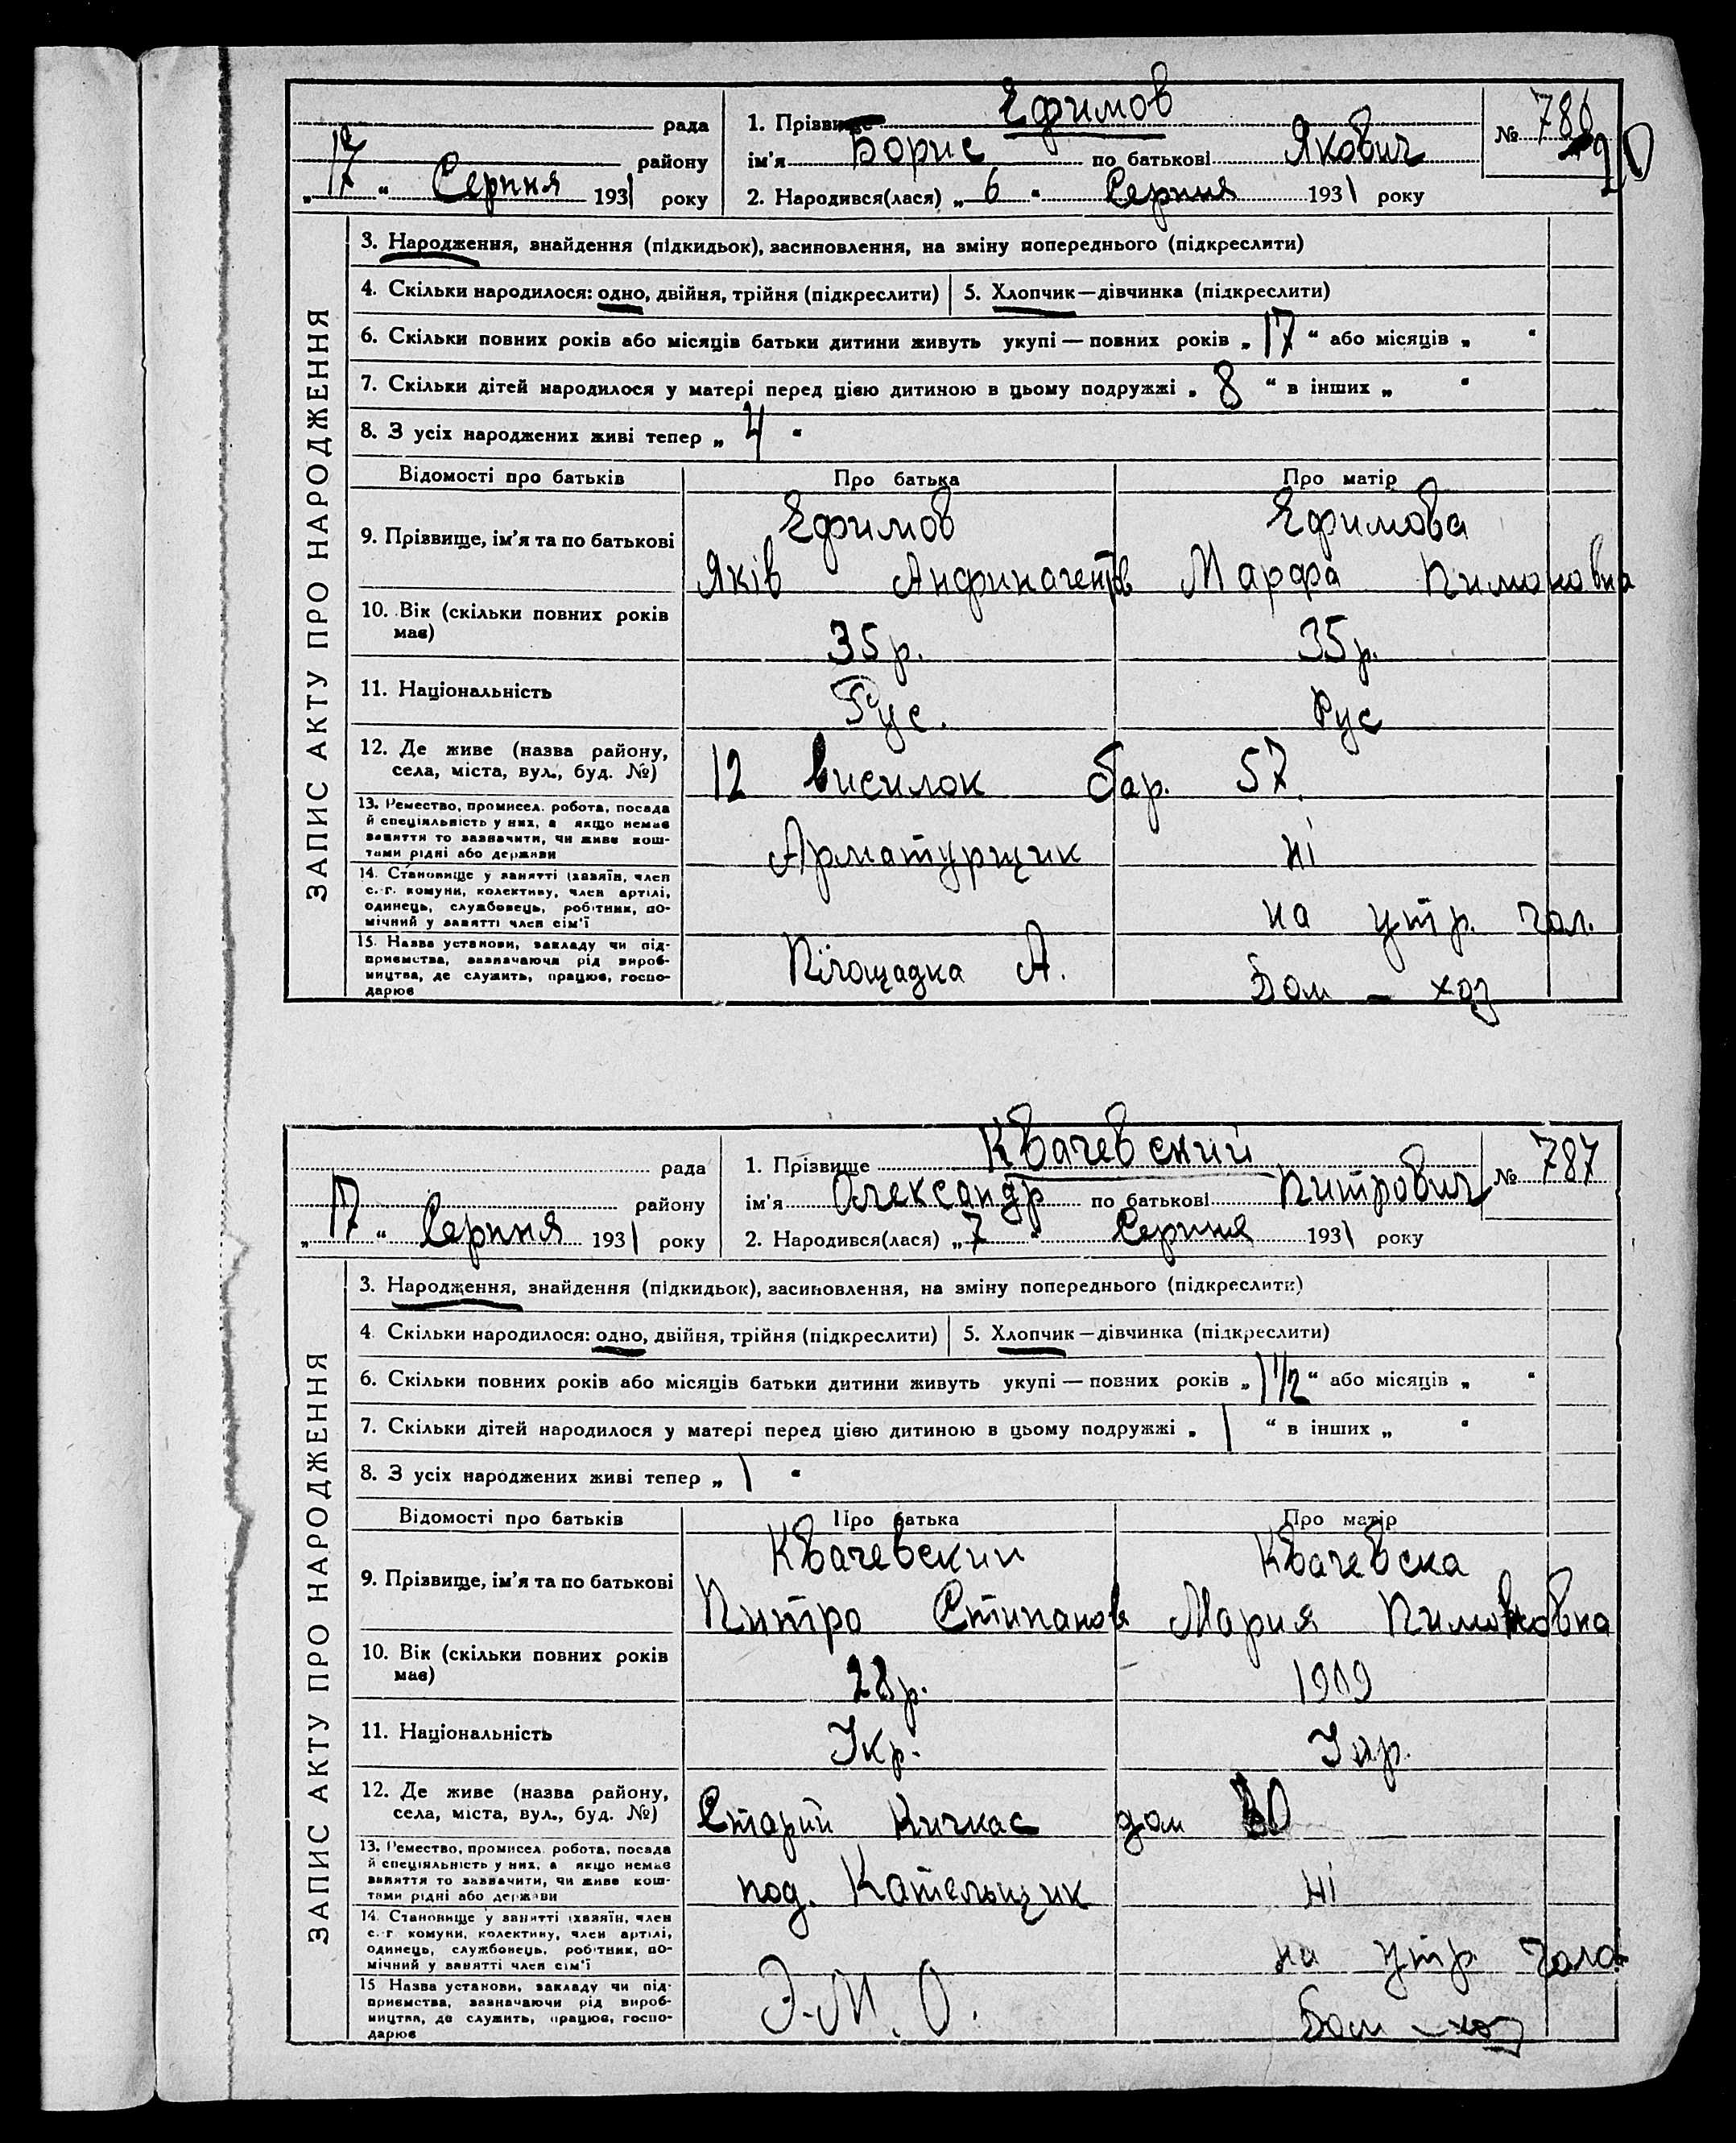 ЗАПИС АКТУ ПРО НАРОДЖЕННЯ
рада
району
„17“ Серпня 1931 року
1. Прізвище Ефимов
ім'я Борис по батькові Якович
2. Народився(лася) „6“ Серпня 1931 року
№ 786
20
3. Народження, знайдення (підкидьок), засиновлення, на зміну попереднього (підкреслити)
4. Скільки народилося: одно, двійня, трійня (підкреслити) 5. Хлопчик—дівчинка (підкреслити)
6. Скільки повних років або місяців батьки дитини живуть укупі — повних років „17“ або місяців „ “
7. Скільки дітей народилося у матері перед цією дитиною в цьому подружжі „8“ в інших „ “
8. З усіх народжених живі тепер „4“
Відомості про батьків Про батька Про матір
9. Прізвище, ім'я та по батькові Ефимов Ефимова
Яків Марфа Пимоновна
10. Вік (скільки повних років має) 35р. 35р.
11. Національність Рус. Рус
12. Де живе (назва району, села, міста, вул., буд. №) 12 висилок бар. 57.
13. Ремество, промисел, робота, посада
й спеціяльність у них, а якщо немає
заняття то зазначити, чи живе кош-
тами рідні або держави
Арматурщик ні
14. Становище у занятті (хазяїн, член
с.-г. комуни, колективу, член артілі,
одинець, службовець, робітник, по-
мічний у занятті член сім'ї
на утр. чол.
15. Назва установи, закладу чи під-
приємства, зазначаючи рід вироб-
ництва, де служить, працює, госпо-
дарює
Площадка А. Дом – хоз
ЗАПИС АКТУ ПРО НАРОДЖЕННЯ
рада
району
„17“ Серпня 1931 року
1. Прізвище Квачевский
ім'я Олександр по батькові Питрович
2. Народився(лася) „7“ Серпня 1931 року
№ 787
3. Народження, знайдення (підкидьок), засиновлення, на зміну попереднього (підкреслити)
4. Скільки народилося: одно, двійня, трійня (підкреслити) 5. Хлопчик—дівчинка (підкреслити)
6. Скільки повних років або місяців батьки дитини живуть укупі — повних років „1 1/2“ або місяців „ “
7. Скільки дітей народилося у матері перед цією дитиною в цьому подружжі „1“ в інших „ “
8. З усіх народжених живі тепер „1“
Відомості про батьків Про батька Про матір
9. Прізвище, ім'я та по батькові Квачевский Квачевска
Питро Стипанов Мария
10. Вік (скільки повних років має) 28р. 1909
11. Національність Укр. Укр.
12. Де живе (назва району, села, міста, вул., буд. №) Старий Кичкас дом
13. Ремество, промисел, робота, посада
й спеціяльність у них, а якщо немає
заняття то зазначити, чи живе кош-
тами рідні або держави
под. Кательщик ні
14. Становище у занятті (хазяїн, член
с.-г. комуни, колективу, член артілі,
одинець, службовець, робітник, по-
мічний у занятті член сім'ї
на утр чола
15. Назва установи, закладу чи під-
приємства, зазначаючи рід вироб-
ництва, де служить, працює, госпо-
дарює
Э.М.О. Дом – хоз